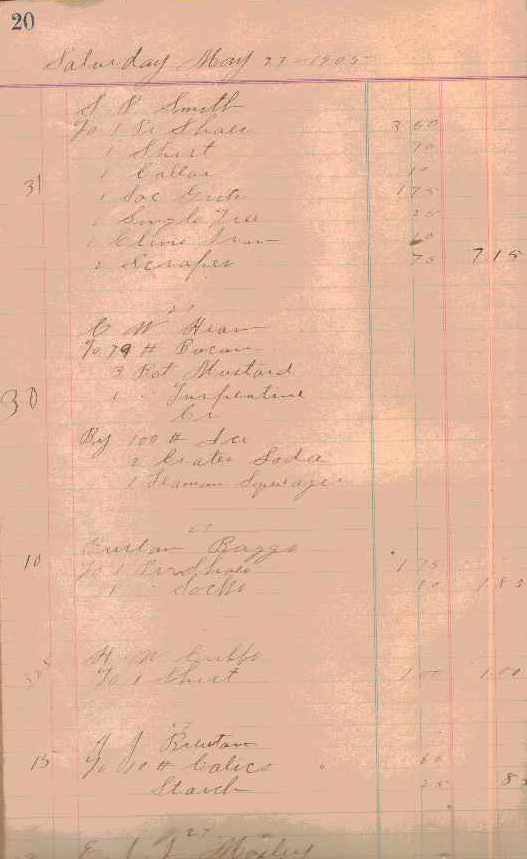 20
Saturday May 27-1905
S. P. Smith
To 1 Pr Shoes 3 60
1 Shirt 70
1 Collar 10
31 1 Sac Grits 1 75
1 Single Tree 25
1 Cline Iron
2 Scraper 75 7 15
27
C W Hearn
To 79 # Bacon
3 Bot Mustard
30 1 " Turpentine
Cr
By 100 # Ice
2 Crates Soda
1
27
Baggs
10 To 1 Pr Shoes 1 75
1 " Socks 10 1 85
H W
To 1 Shirt 1 00 1.00
27
J. J.
15 To 10 # Calico 60
Starch 25 8
27
E. J. Mosley